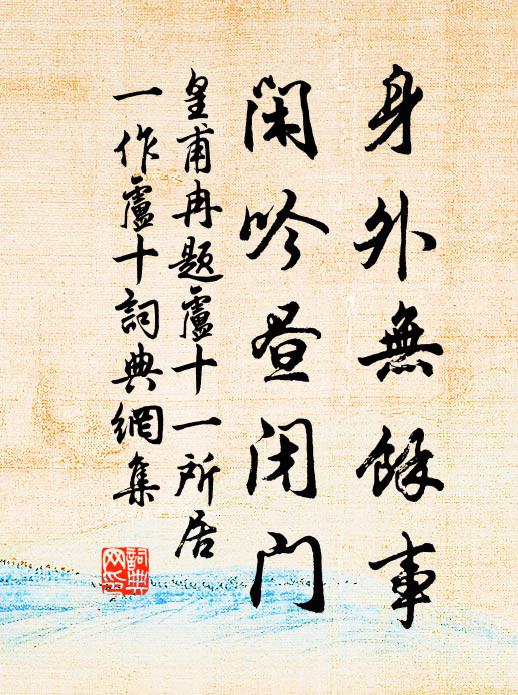 身外無餘事
閑吟昼闭门
皇甫冉題盧十一所居
一作盧十詞典網集
詞典网